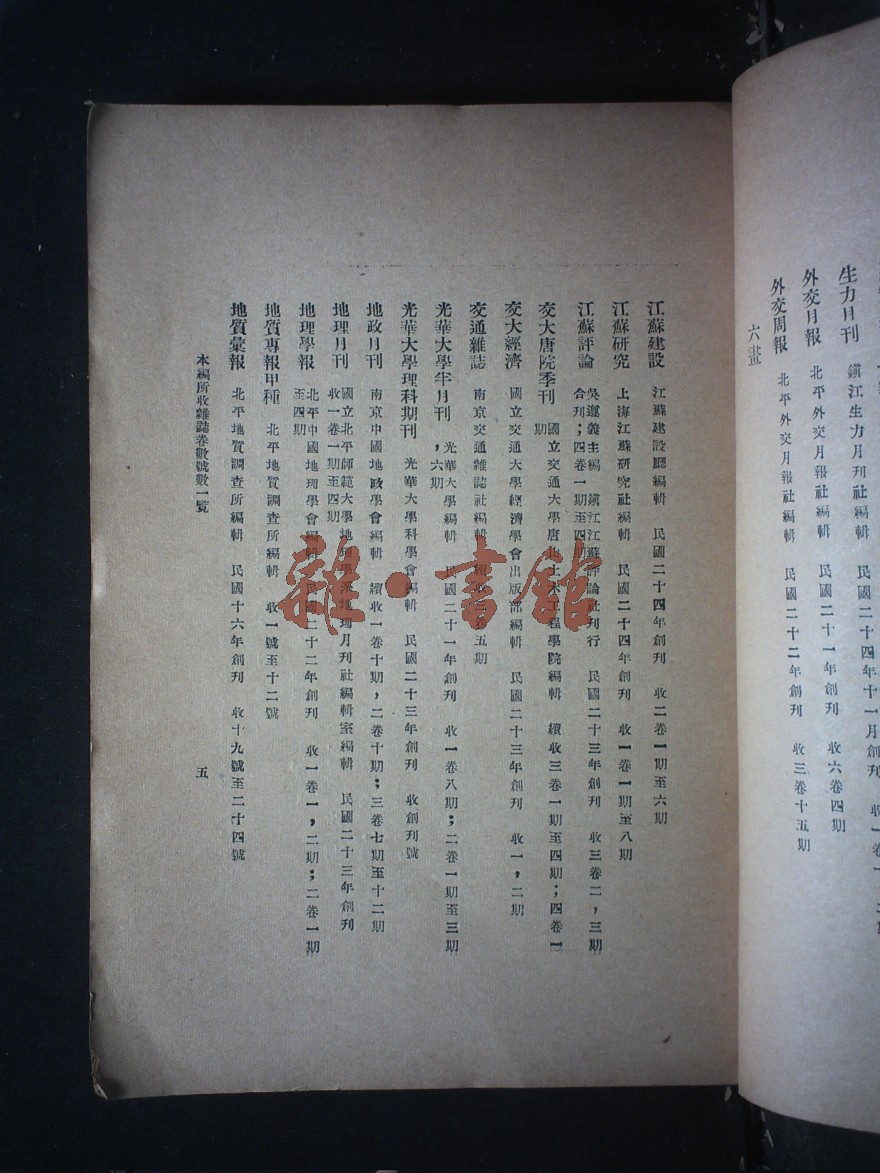 生力月刊　鎮江生力月刊社編輯　民國二十四年十一月創刊　收一卷一，二
外交月報　北平外交月報社編輯　民國二十一年創刊　收六卷四期
外交周報　北平外交月報社編輯　民國二十二年創刊　收三卷十五期
六畫
江蘇建設　江蘇建設廳編輯　民國二十四年創刊　收二卷一期至六期
江蘇研究　上海江蘇研究社編輯　民國二十四年創刊　收一卷一期至八期
江蘇評論　吳邁義主編　鎮江江蘇評論社刊行　民國二十三年創刊　收三卷二，三期
合刊；四卷一期至四期
交大唐院季刊　國立交通大學唐山土木工程學院編輯　續收三卷一期至四期；四卷一
期
交大經濟　國立交通大學經濟學會出版部編輯　民國二十三年創刊　收一，二期
交通雜誌　南京交通雜誌社編輯　續收三卷五期
光華大學半月刊　光華大學編輯　民國二十一年創刊　收一卷八期；二卷一期至三期
，六期
光華大學理科期刊　光華大學科學會編輯　民國二十三年創刊　收創刊號
地政月刊　南京中國地政學會編輯　續收一卷十期，二卷十期；三卷七期至十二期
地理月刊　國立北平師範大學地理學系地理月刊社編輯室編輯　民國二十三年創刊
收一卷一期至四期
地理學報　北平中國地理學會編輯　民國二十二年創刊　收一卷一，二期；二卷一期
至四期
地質專報甲種　北平地質調查所編輯　收一號至十二號
地質彙報　北平地質調查所編輯　民國十六年創刊　收十九號至二十四號
本編所收雜誌卷數號數一覽
五
雜·書館